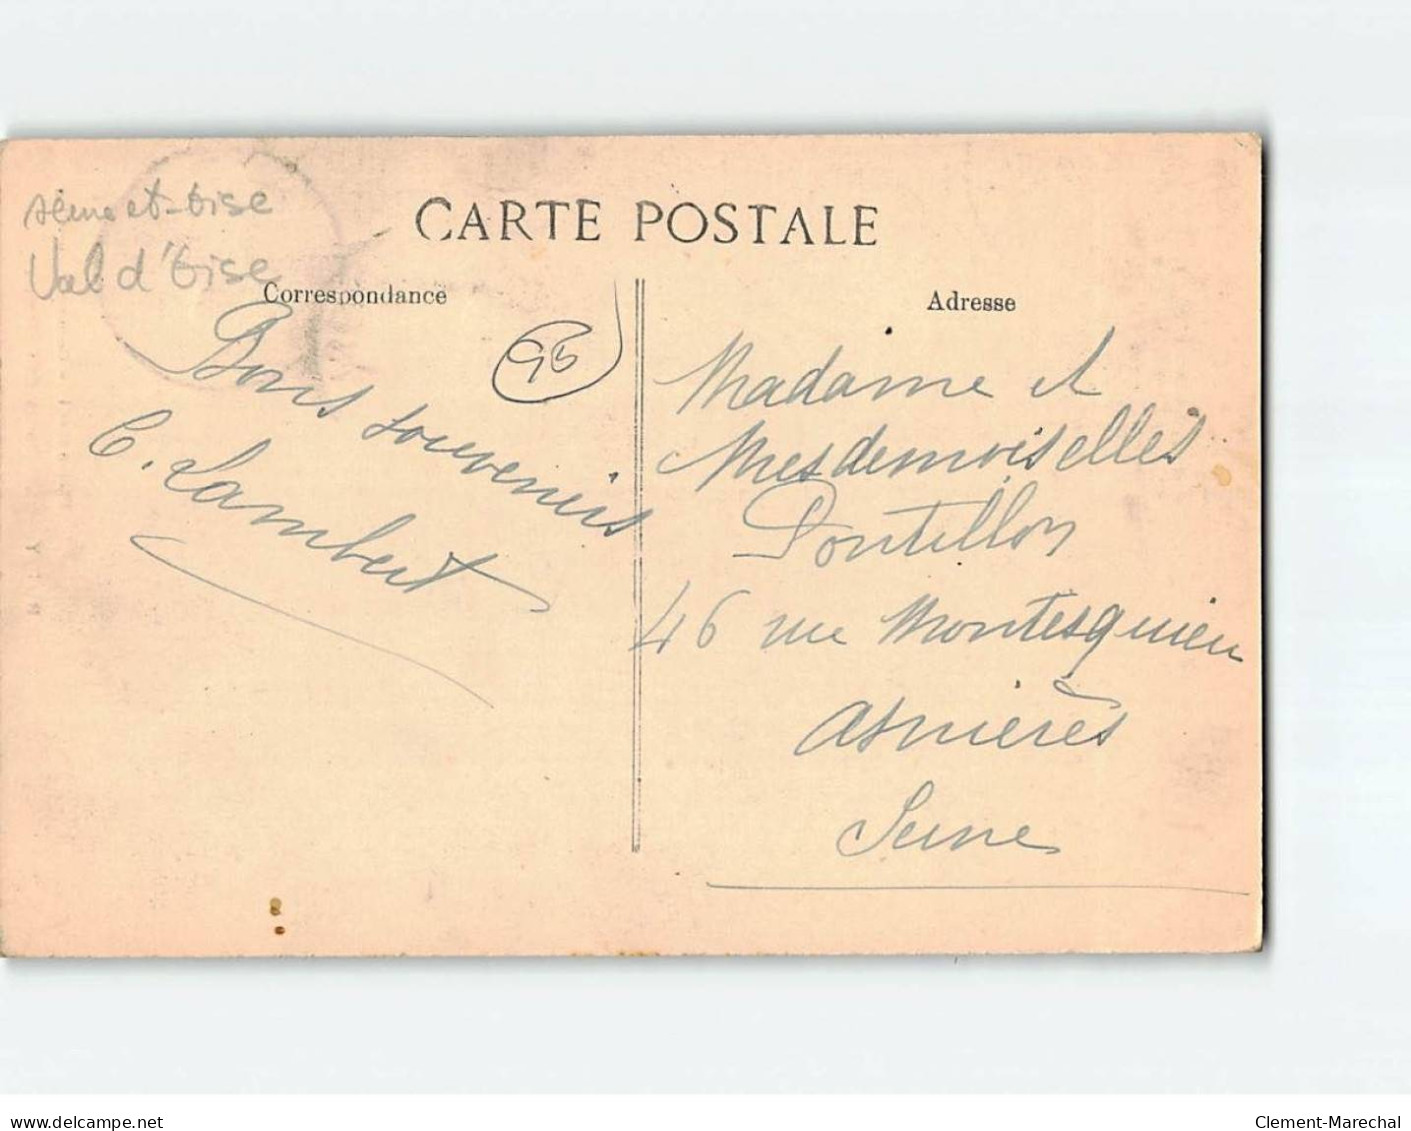 Seine et-Oise
Val d'Oise
CARTE POSTALE
Correspondance
Adresse
95
Bons souvenirs
C. Lambert
Madame et
Mesdemoiselles
Pontillon
46 rue Montesquieu
Asnières
Seine
www.delcampe.net
Clement-Marechal